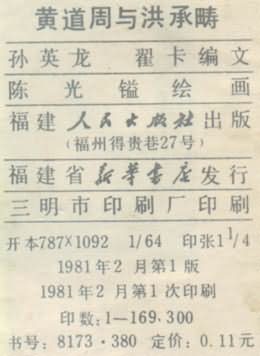 黄道周与洪承畴
孙英龙 翟卡编文
陈光镒绘画
福建人民出版社出版
(福州得贵巷27号)
福建省新华书店发行
三明市印刷厂印刷
开本787×1092 1/64 印张1 1/4
1981年2月第1版
1981年2月第1次印刷
印数:1—169,300
书号:8173·380 定价:0.11元